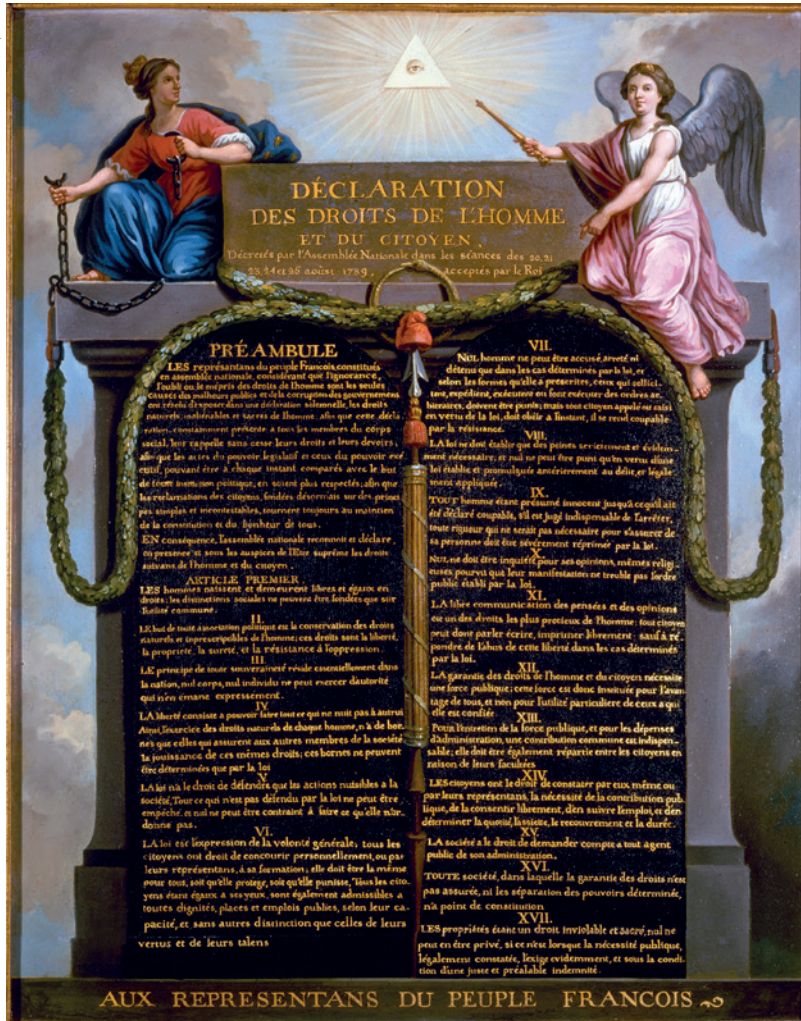 DÉCLARATION
DES DROITS DE L'HOMME
ET DU CITOYEN,
Décretés par l'Assemblée Nationale dans les séances des 20, 21
23, 24 et 26 août 1789, acceptés par le Roi
PRÉAMBULE
LES représentans du peuple Francois, constitués
en assemblée nationale, considérant que l'ignorance,
l'oubli ou le mépris des droits de l'homme sont les seules
causes des malheurs publics et de la corruption des gouvernemens
ont résolu d'exposer dans une déclaration solemnelle, les droits
naturels, inaliénables et sacrés de l'homme, afin que cette décla
ration, constamment présente a tous les membres du corps
social, leur rappelle sans cesse leurs droits et leurs devoirs,
afin que les actes du pouvoir législatif et ceux du pouvoir exé
cutif, pouvant être à chaque instant comparés avec le but
de toute institution politique, en soient plus respectés; afin que
les réclamations des citoyens, fondées désormais sur des principes
simples et incontestables, tournent toujours au maintien
de la constitution et du bonheur de tous.
EN conséquence, l'assemblée nationale reconnoit et déclare,
en presence et sous les auspices de l'Etre suprême les droits
suivans de l'homme et du citoyen.
ARTICLE PREMIER.
LES hommes naissent et demeurent libres et égaux en
droits; les distinctions sociales ne peuvent être fondées que sur
l'utilité commune.
II.
LE but de toute association politique est la conservation des droits
naturels et inprescriptibles de l'homme; ces droits sont la liberté,
la proprieté, la sureté, et la résistance à l'oppression.
III.
LE principe de toute souveraineté réside essentiellement dans
la nation, nul corps, nul individu ne peut exercer d'autorité
qui n'en émane expressement.
IV.
LA liberté consiste a pouvoir faire tout ce qui ne nuit pas à autrui
Ainsi, l'exercice des droits naturels de chaque homme, n'a de bor-
nes que celles qui assurent aux autres membres de la société
la jouissance de ces mêmes droits; ces bornes ne peuvent
être déterminées que par la loi
V.
LA loi n'a le droit de défendre que les actions nuisibles a la
société, Tout ce qui n'est pas défendu par la loi ne peut être
empéché, et nul ne peut être contraint à faire ce qu'elle n'or-
donne pas.
VI.
LA loi est l'expression de la volonté générale; tous les
citoyens ont droit de concourir personnellement, ou par
leurs représentans, à sa formation; elle doit être la même
pour tous, soit qu'elle protege, soit qu'elle punisse, Tous les cito-
yens étant égaux a ses yeux, sont également admissibles a
toutes dignités, places et emplois publics, selon leur ca-
pacité, et sans autres distinction que celles de leurs
vertus et de leurs talens
VII.
NUL homme ne peut être accusé, arreté ni
détenu que dans les cas déterminés par la loi, et
selon les formes qu'elle a prescrites, ceux qui sollici-
tent, expédient, exécutent ou font exécuter des ordres ar-
bitraires, doivent être punis; mais tout citoyen appelé ou saisi
en vertu de la loi, doit obéir a l'instant, il se rend coupable
par la résistance.
VIII.
LA loi ne doit établir que des peines strictement et évidem-
ment nécessaire, et nul ne peut être puni qu'en vertu d'une
loi établie et promulguée antérierement au délit, et légale
ment appliquée.
IX.
TOUT homme étant présumé innocent jusqu'a ce qu'il ait
été déclaré coupable, s'il est jugé indispensable de l'arrêter,
toute rigueur qui ne serait pas nécessaire pour s'assurer de
sa personne doit être sévèrement réprimée par la loi.
X.
NUL ne doit être inquiété pour ses opinions, mêmes religi
euses pourvu que leur manifestation ne trouble pas l'ordre
public établi par la loi.
XI.
LA libre communication des pensées et des opinions
est un des droits les plus precieux de l'homme; tout citoyen
peut donc parler écrire, imprimer librement; sauf à ré
pondre de l'abus de cette liberté dans les cas déterminés
par la loi.
XII.
LA garantie des droits de l'homme et du citoyen nécessite
une force publique; cette force est donc instituée pour l'avan
tage de tous, et non pour l'utilité particuliere de ceux a qui
elle est confiée.
XIII.
Pour l'entretien de la force publique, et pour les dépenses
d'administration, une contribution commune est indispen-
sable; elle doit être également répartie entre les citoyens en
raison de leurs facultées
XIV.
LES citoyens ont le droit de constater par eux même ou
par leurs représentans, la nécessité de la contribution pub-
lique, de la consentir librement, d'en suivre l'emploi, et d'en
déterminer la quotité, l'assiette, le recouvrement et la durée.
XV.
LA société a le droit de demander compte a tout agent
public de son administration.
XVI.
TOUTE société, dans laquelle la garantie des droits n'est
pas assurée, ni les séparation des pouvoirs déterminée,
n'a point de constitution
XVII.
LES propriétés étant un droit inviolable et sacré, nul ne
peut en être privé, si ce n'est lorsque la nécessité publique,
légalement constatée, l'exige evidemment, et sous la condi-
tion d'une juste et préalable indemnité.
AUX REPRESENTANS DU PEUPLE FRANCOIS